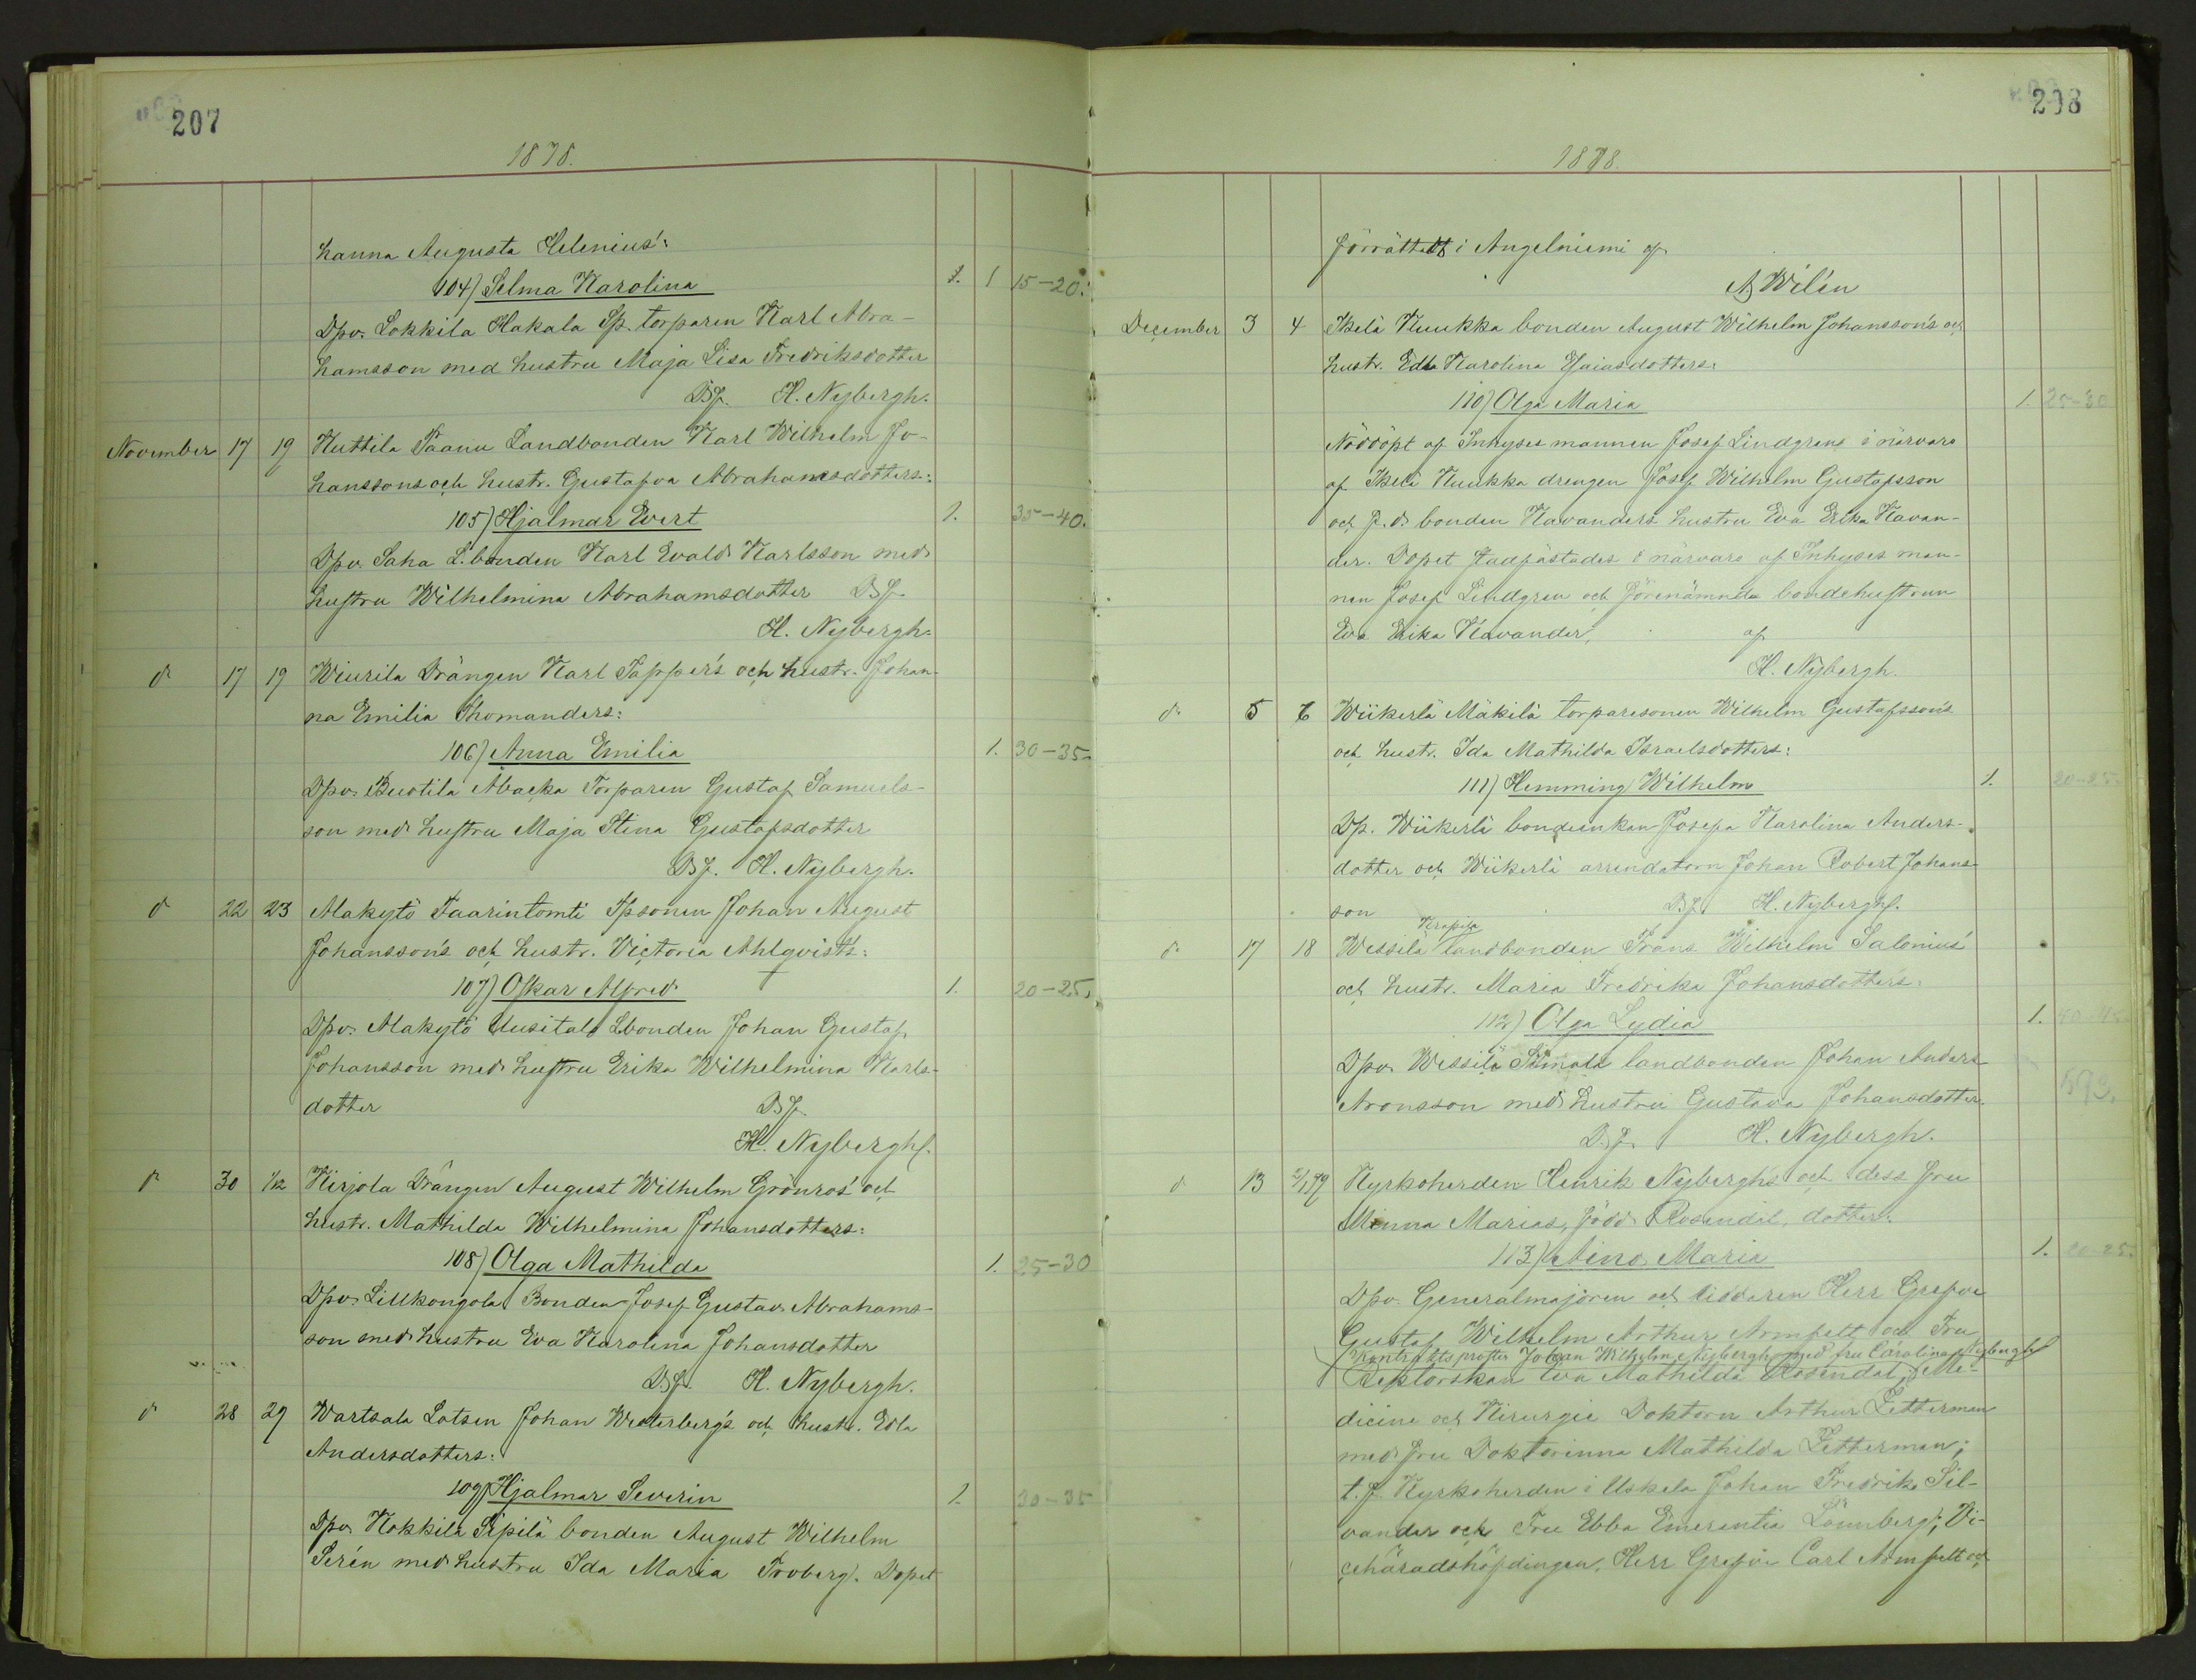 207
1878.
hanna Augusta Helenius':
104) Selma Karolina 1. 1 15-20.
Dpv. Lokkila Hakala Sp. torparen Karl Abra-
hamsson med hustru Maja Lisa Fredriksdotter
Bf. H. Nybergh.
November 17 19 Kuttila Paanu Landbonden Karl Wilhelm Jo-
hanssons och hustr. Gustafva Abrahamsdotters:
105) Hjalmar Evert 1. 35-40.
Dpv. Saha L.bonden Karl Evald Karlsson med
hustru Wilhelmina Abrahamsdotter Bf.
H. Nybergh.
d 17 19 Wiurila Drängen Karl Tapper's och hustr. Johan-
na Emilia Thomanders:
106) Anna Emilia 1. 30-35.
Dpv. Buotila Abacka Torparen Gustaf Samuels-
son med hustru Maja Stina Gustafsdotter
Bf. H. Nybergh.
d 22 23 Alakytö Taarintomti Tpsonen Johan August
Johansson's och hustr. Victoria Ahlqvist's:
107) Oskar Alfred 1. 20-25.
Dpv. Alakytö Uusitalo Lbonden Johan Gustaf
Johansson med hustru Erika Wilhelmina Karls-
dotter Bf.
H. Nybergh.
d 30 1/12 Kirjola Drängen August Wilhelm Grönros' och
hustr. Mathilda Wilhelmina Johansdotters:
108) Olga Mathilda 1. 25-30
Dpv. Lillkongola Bonden Josef Gustav Abrahams-
son med hustru Eva Karolina Johansdotter
Bf. H. Nybergh.
d 28 29 Wartsala Lotsen Johan Westerberg's och hustr. Edla
Andersdotters:
109) Hjalmar Severin 1. 30-35
Dpv. Kokkila Sipilä bonden August Wilhelm
Serén med hustru Ida Maria Froberg. Dopet
208
1878.
förrättadt i Angelniemi af
A Wilén
December 3 4 Ikelä Kuukka bonden August Wilhelm Johansson's och
hustr. Edla Karolina Esaiasdotters:
110) Olga Maria 1. 25-30
Nöddöpt af Inhyses mannen Josef Lindgrens i närvaro
af Ikelä Kuukka drengen Josef Wilhelm Gustafsson
och f.d. bonden Kavanders hustru Eva Erika Kavan-
der. Dopet stadfästades i närvaro af Inhyses man-
nen Josef Lindgren och förenämnda bondehustrun
Eva Erika Kavander, af
H. Nybergh.
d 5 6 Wiikerlä Mäkilä torparesonen Wilhelm Gustafsson's
och hustr. Ida Mathilda Israelsdotters:
111) Hemming Wilhelm 1. 20-25.
Dp. Wiikerlä bondeenkan Josefa Karolina Anders-
dotter och Wiikerlä arrendatorn Johan Robert Johans-
son Bf. H. Nybergh.
Krapila
d 17 18 Wessilä landbonden Frans Wilhelm Salonius'
och hustr. Maria Fredrika Johansdotter's:
112) Olga Lydia 1. 40-45
Dpv. Wessilä landbonden Johan Anders
Aronsson med hustru Gustava Johansdotter. 593.
Bf. H. Nybergh.
d 13 2/1 79 Kyrkoherden Henrik Nybergh's och dess fru
Minna Marias, född Rosendal, dotter:
113) Aino Maria 1. 20-25.
Dpv. Generalmajoren och riddaren Herr Grefve
Gustaf Wilhelm Arthur Armfelt och Fru
Kontrakts prosten Johan Wilhelm Nybergh med fru Carolina Nybergh
Rektorskan Eva Mathilda Rosendal; Me-
dicine och Kirurgie Doktorn Arthur Zetterman
med fru Doktorinna Mathilda Zetterman;
t.f. Kyrkoherden i Uskela Johan Fredrik Sil-
vander och Fru Ebba Emerentia Lönnberg; Vi-
cehäradshöfdingen, Herr Grefve Carl Armfelt och